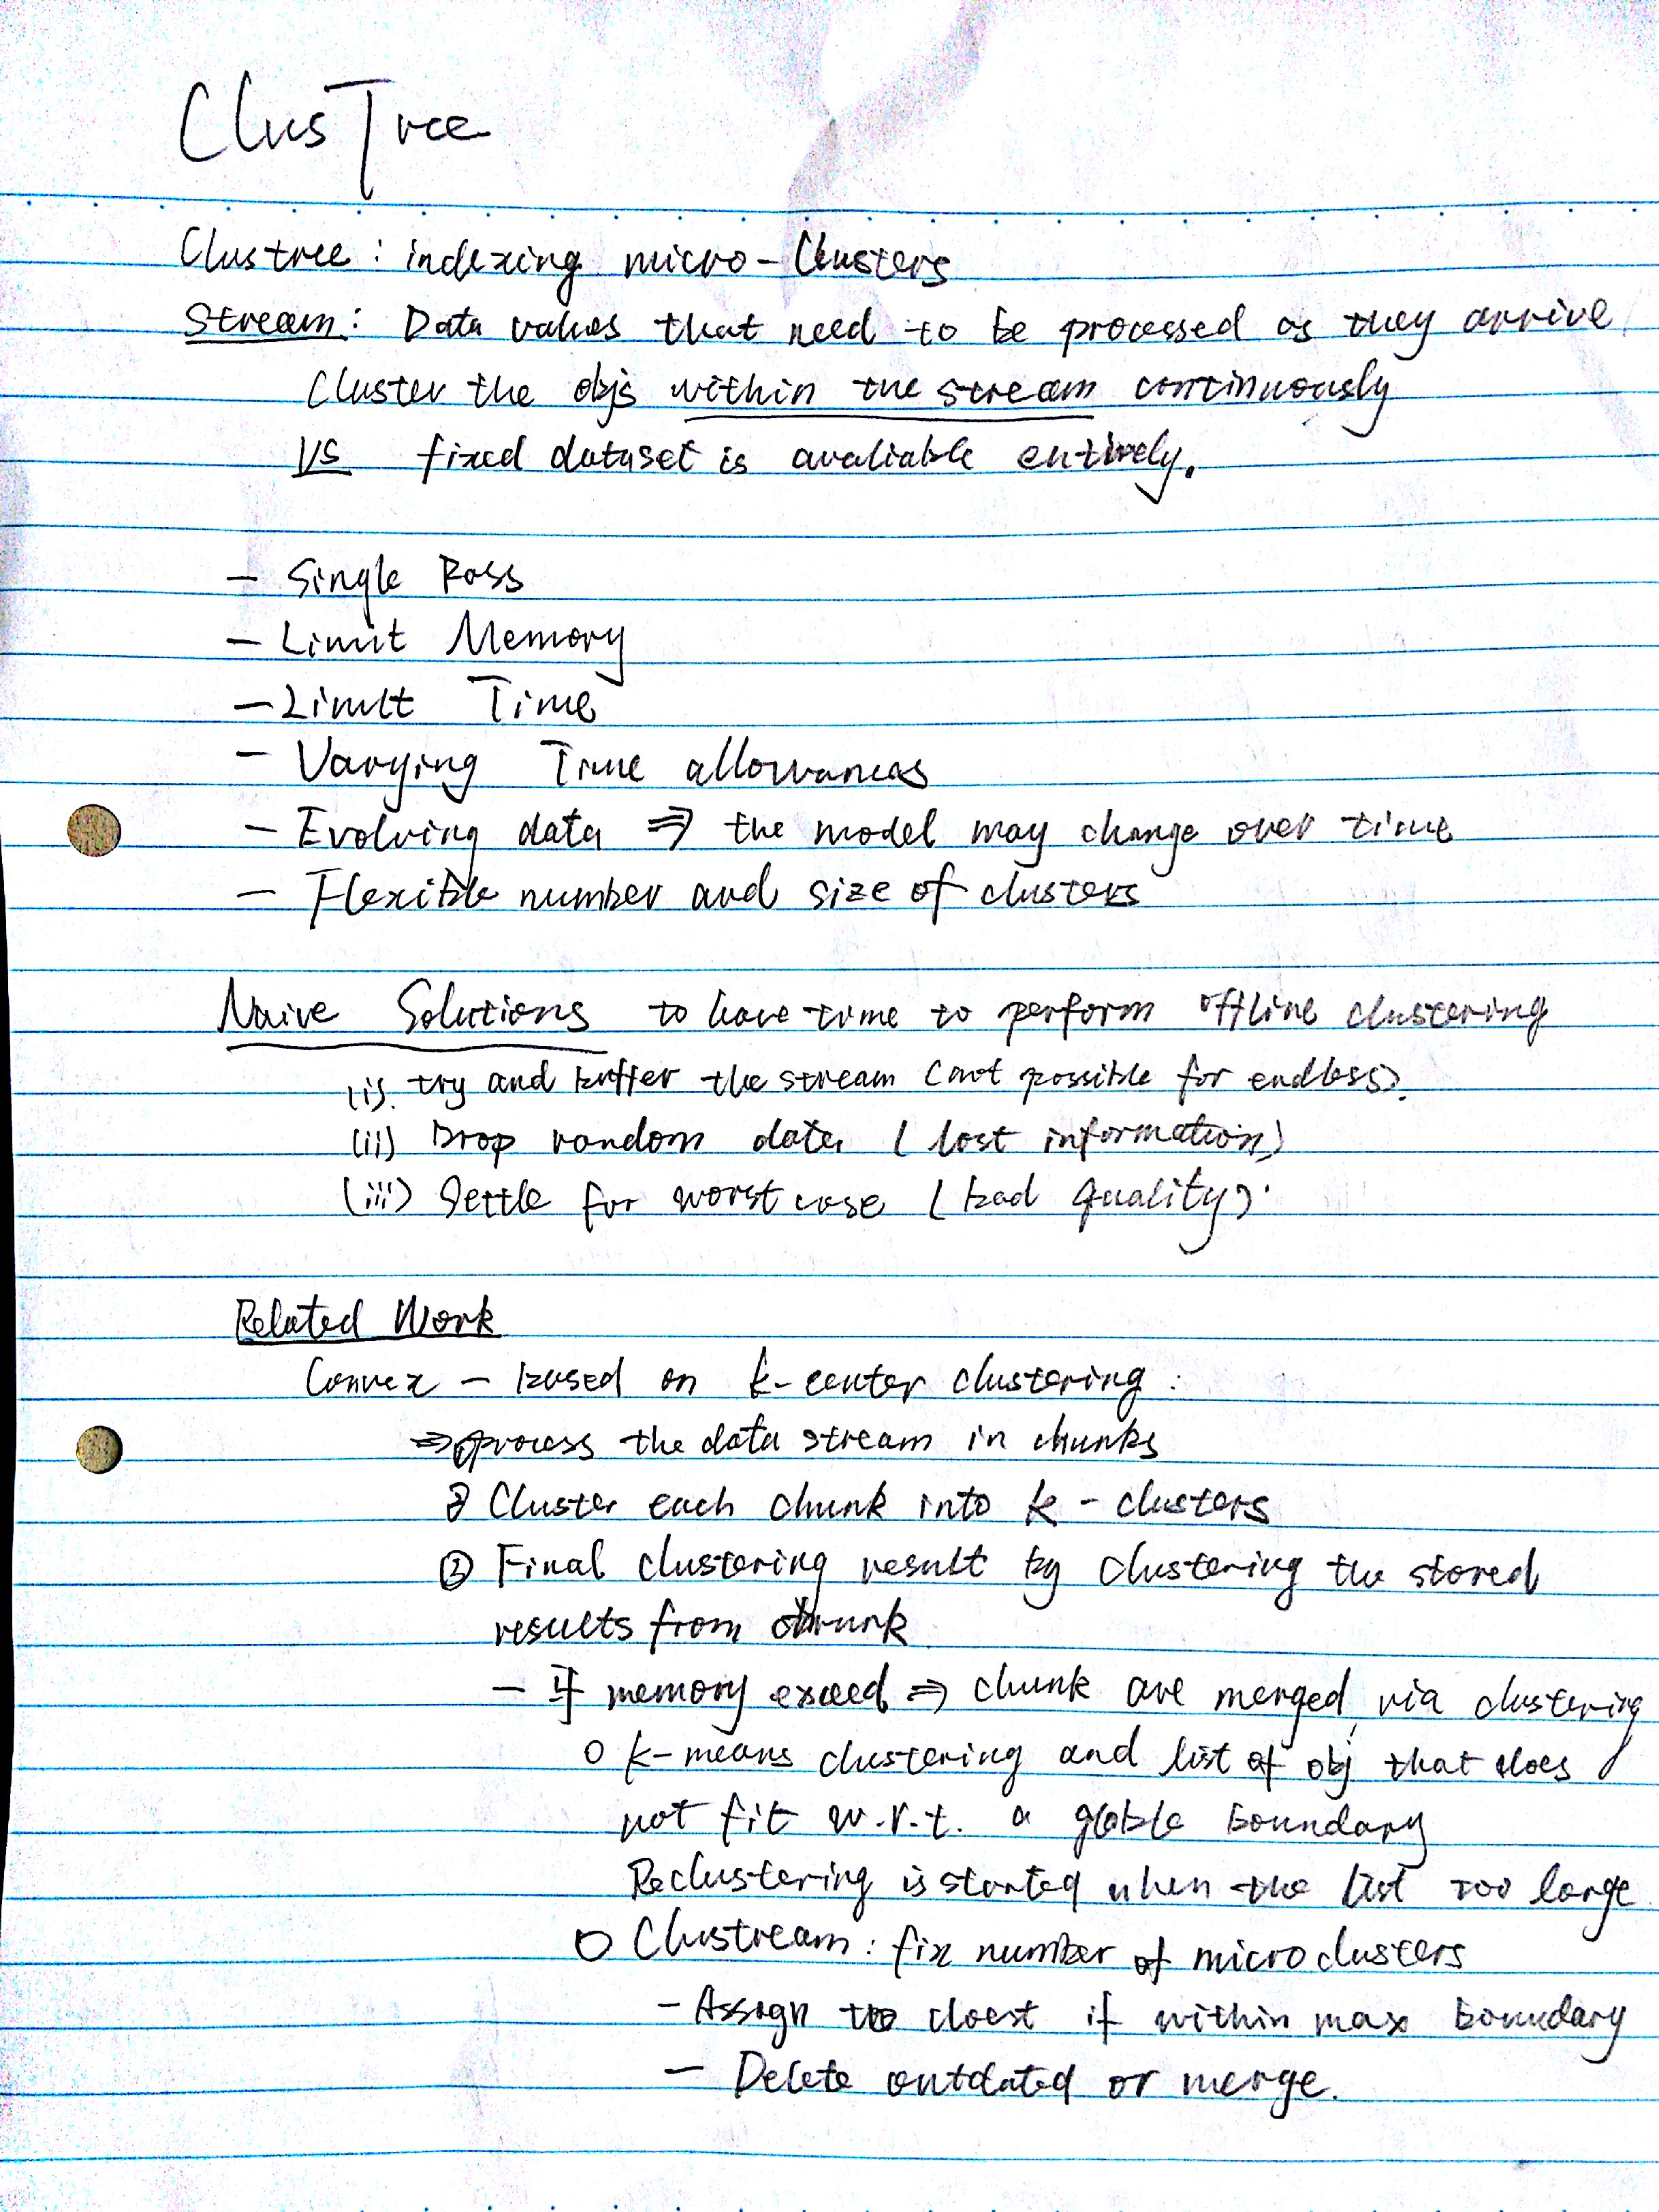 ClusTree
Clustree : indexing micro-Clusters
Stream : Data values that need to be processed as they arrive
Cluster the objs within the stream continuously
VS fixed dataset is avaliable entirely.
- Single Pass
- Limit Memory
- Limit Time
- Varying Time allowances
- Evolving data ⇒ the model may change over time
- Flexible number and size of clusters
Naive Solutions to have time to perform offline clustering
(i). try and buffer the stream (not possible for endless).
(ii) Drop random data (lost information)
(iii) Settle for worst case (bad quality).
Related Work
Convex - based on k-center clustering :
⇒ ① process the data stream in chunks
② Cluster each chunk into k - clusters
③ Final clustering result by clustering the stored
results from chunk
- If memory exceed ⇒ chunk are merged via clustering
○ k-means clustering and list of obj that does
not fit w.r.t. a globle boundary
Reclustering is started when the list too large
○ Clustream : fix number of micro clusters
- Assign to cloest if within max boundary
- Delete outdated or merge.